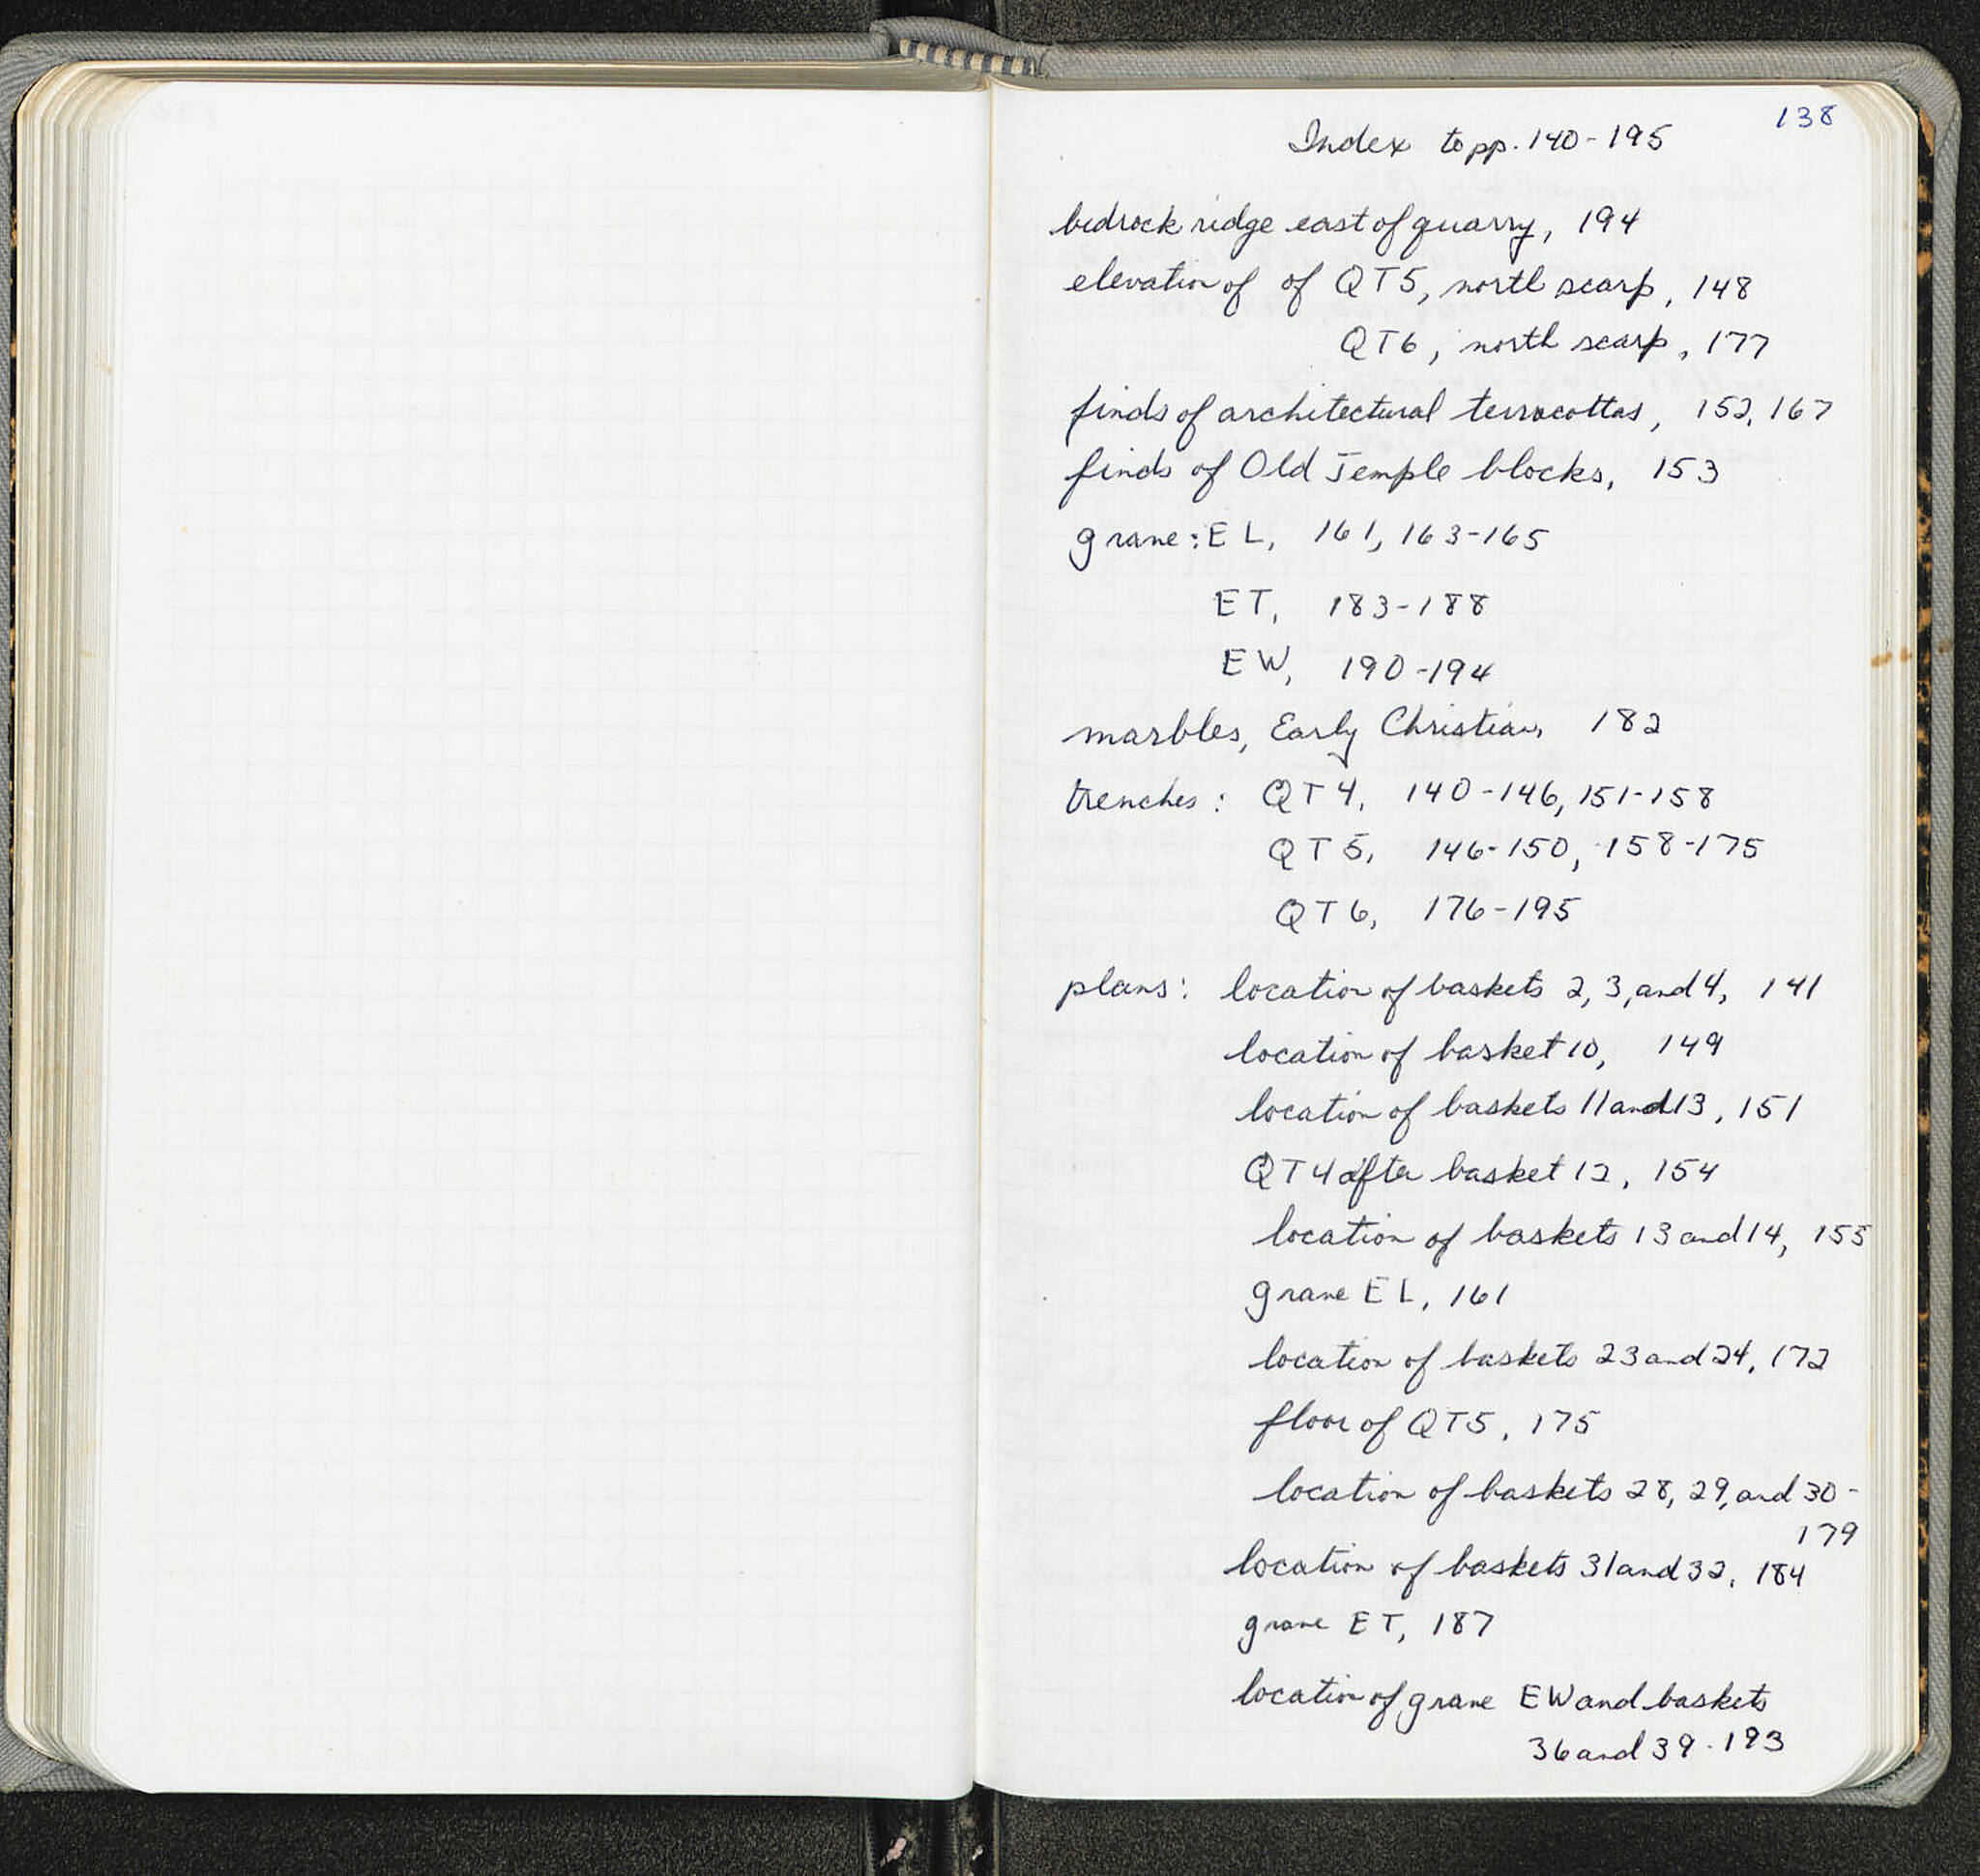 138
Index to pp. 140-195
bedrock ridge east of quarry, 194
elevation of of QT5, north scarp, 148
QT6, north scarp, 177
finds of architectural terracottas, 152, 167
finds of Old Temple blocks, 153
grave: EL, 161, 163-165
ET, 183-188
EW, 190-194
marbles, Early Christian, 182
trenches: QT4, 140-146, 151-158
QT5, 146-150, 158-175
QT6, 176-195
plans: location of baskets 2, 3, and 4, 141
location of basket 10, 149
location of baskets 11 and 13, 151
QT4 after basket 12, 154
location of baskets 13 and 14, 155
grave EL, 161
location of baskets 23 and 24, 172
floor of QT5, 175
location of baskets 28, 29, and 30-
179
location of baskets 31 and 32, 184
grave ET, 187
location of grave EW and baskets
36 and 39-193